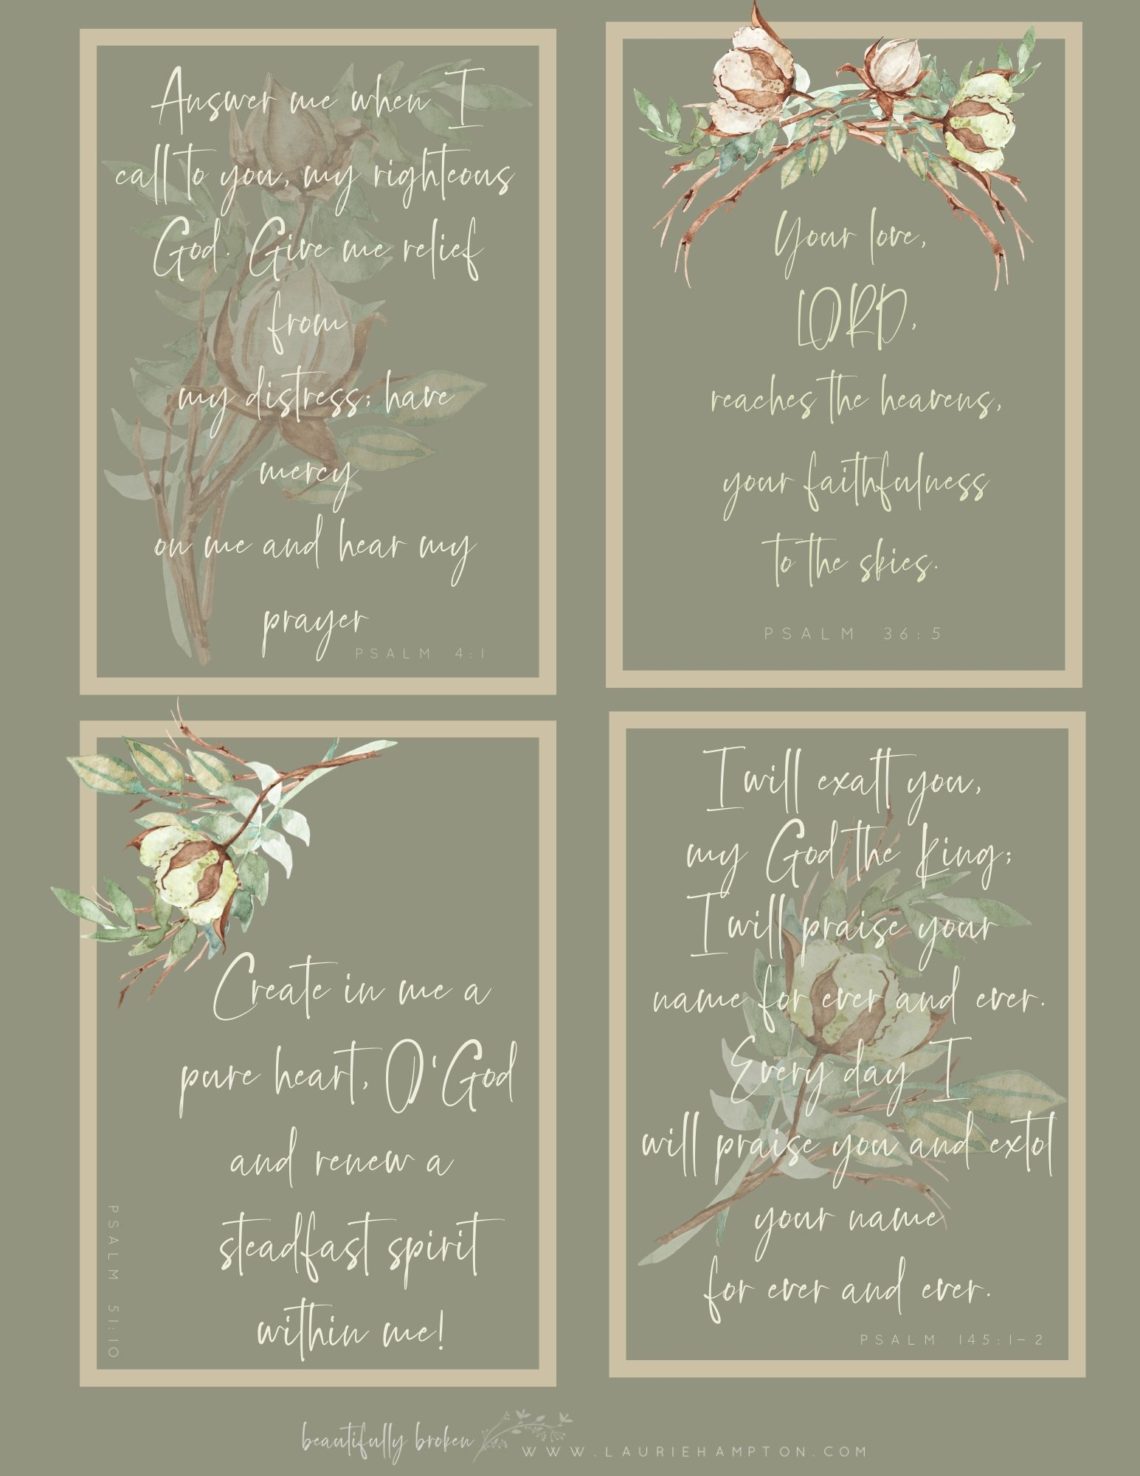 Answer me when I
call to you, my righteous
God. Give me relief
from
my distress; have
mercy
on me and hear my
prayer
PSALM 4:1
Your love,
LORD,
reaches the heavens,
your faithfulness
to the skies.
PSALM 36:5
Create in me a
pure heart, O'God
and renew a
steadfast spirit
within me!
PSALM 51:10
I will exalt you,
my God the King;
I will praise your
name for ever and ever.
Every day I
will praise you and extol
your name
for ever and ever.
PSALM 145:1-2
beautifully broken
WWW.LAURIEHAMPTON.COM